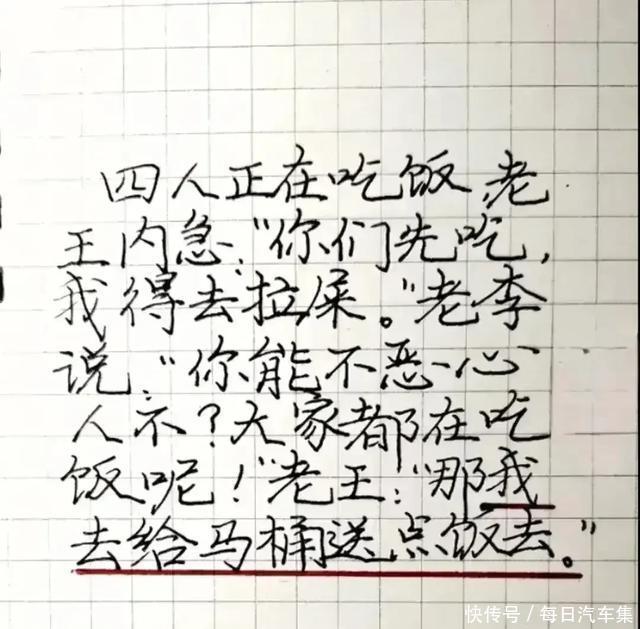 四人正在吃饭,老
王内急:“你们先吃,
我得去拉屎。”老李
说:“你能不恶心
人不?大家都在吃
饭呢!”老王:“那我
去给马桶送点饭去。”
快传号/每日汽车集